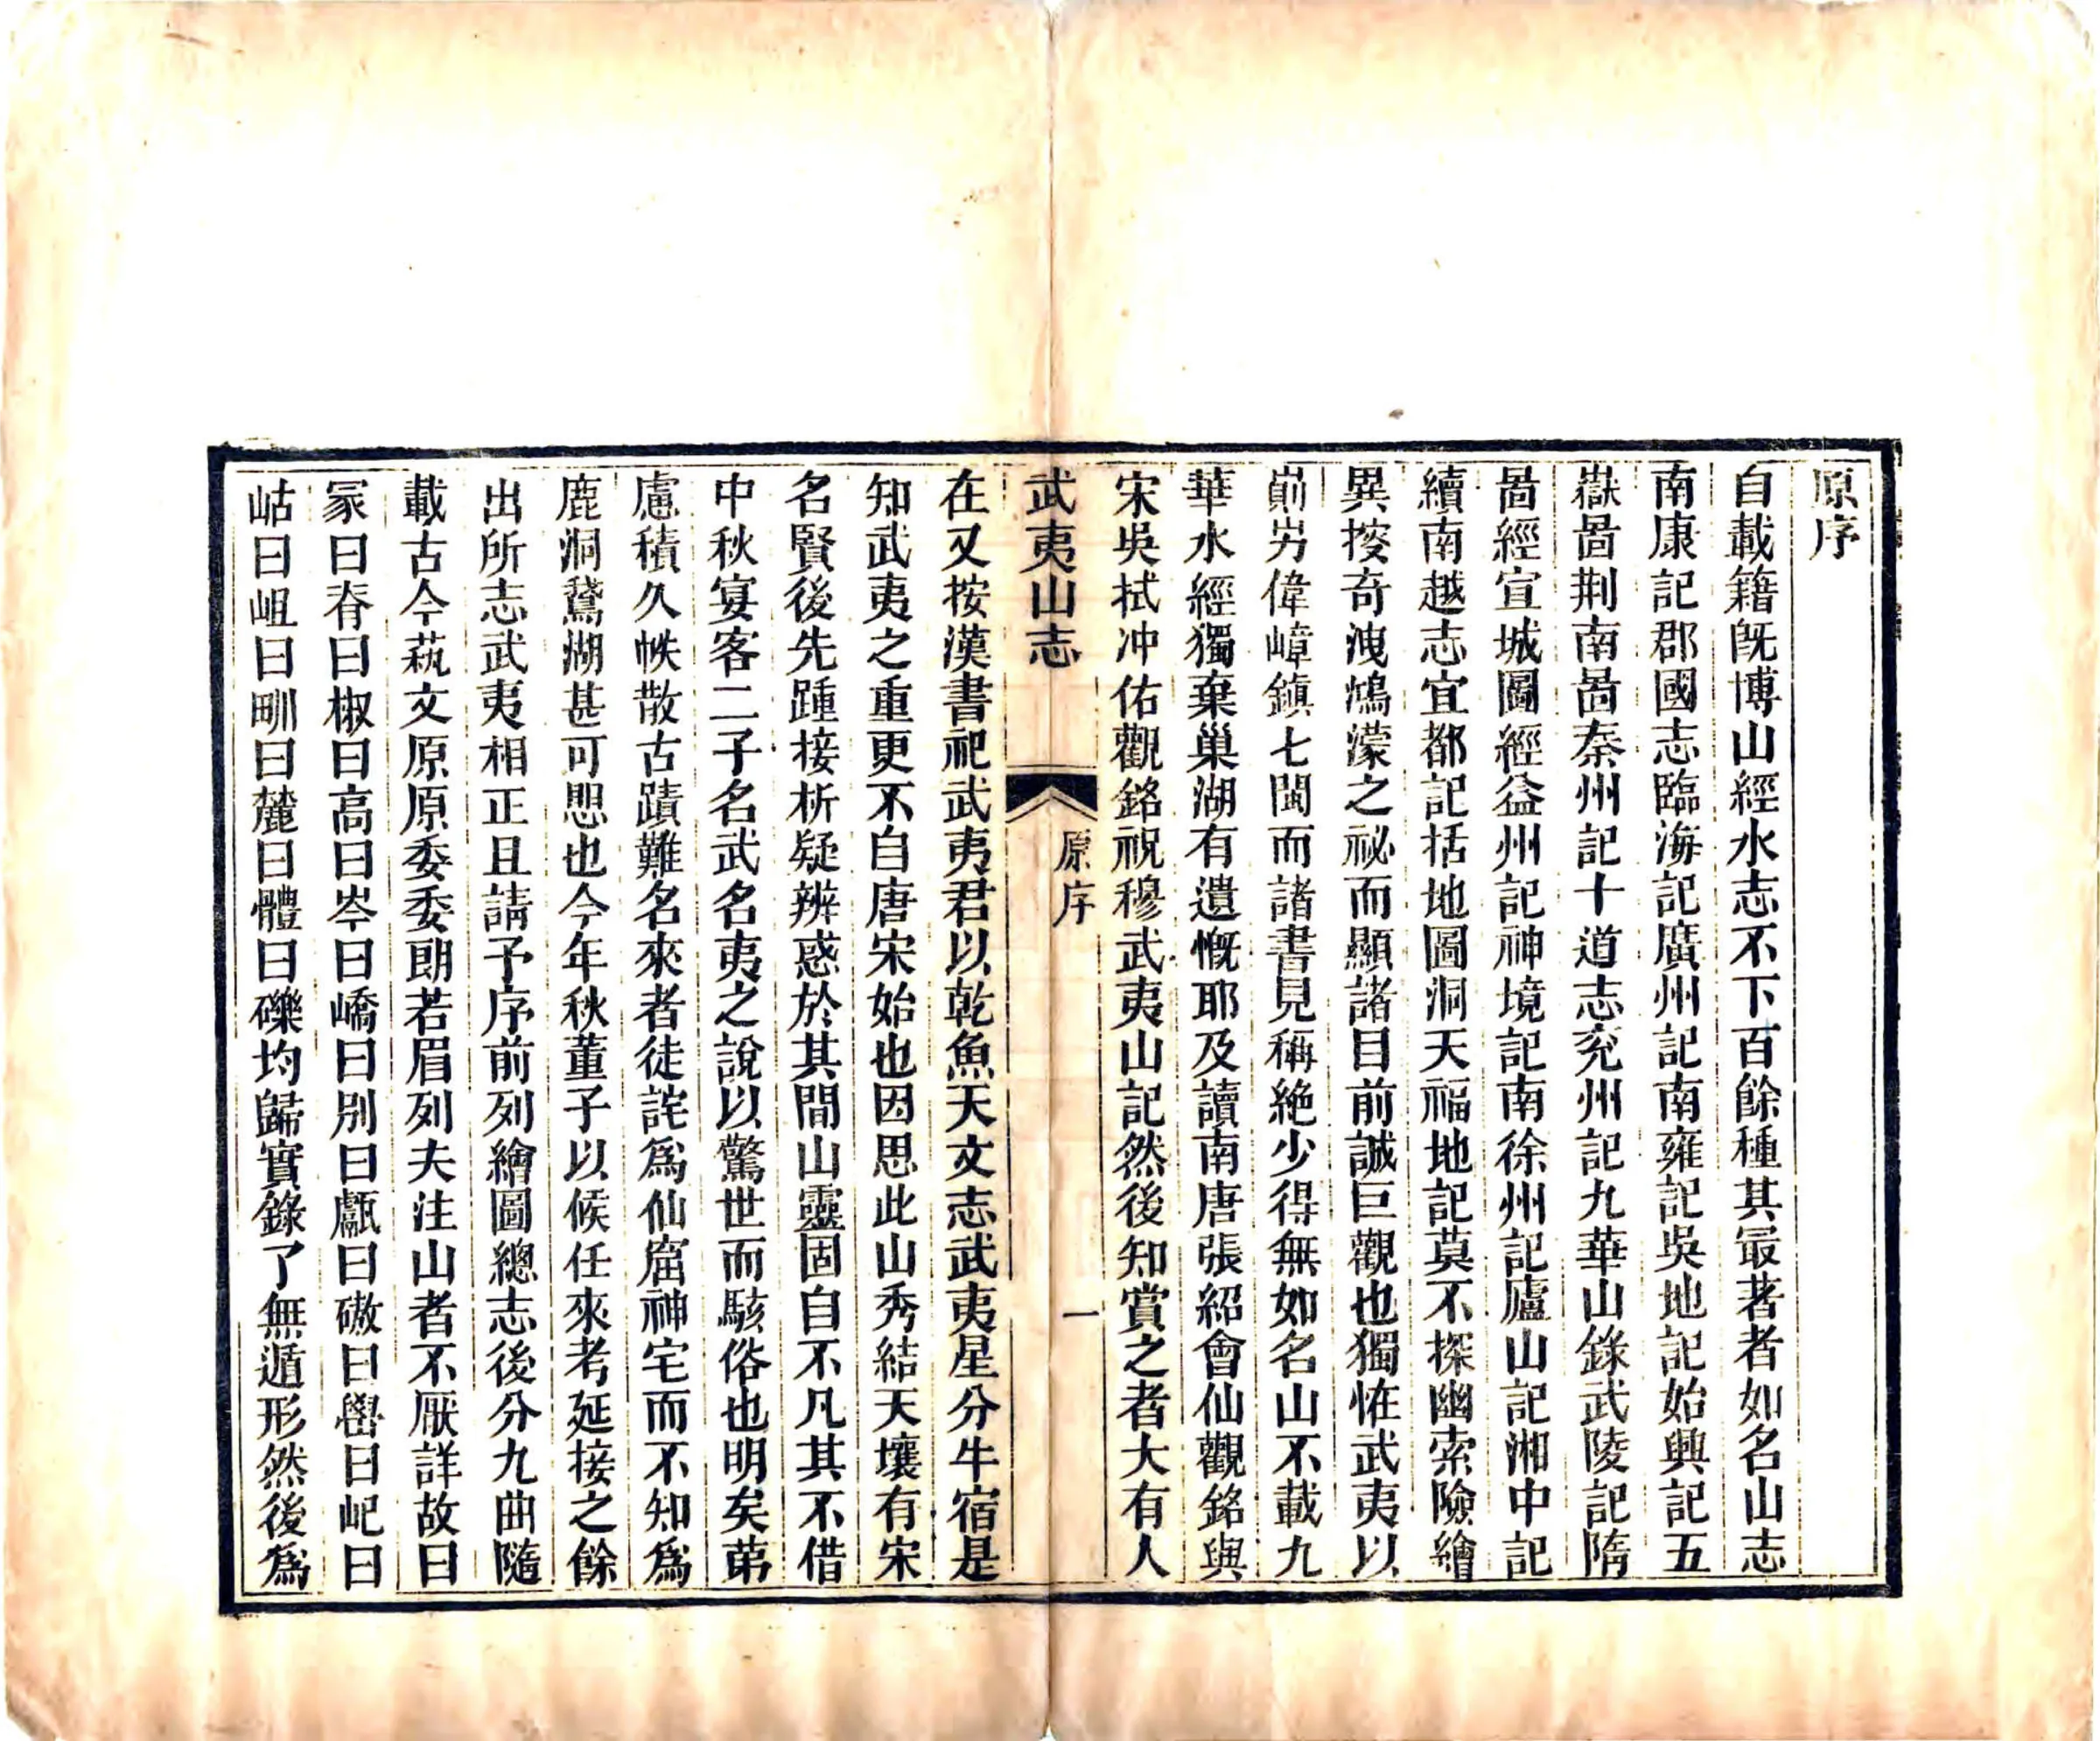 原序
自載籍旣博山經水志不下百餘種其最著者如名山志
南康記郡國志臨海記廣州記南雍記吳地記始興記五
嶽啚荆南啚秦州記十道志兖州記九華山錄武陵記隋
啚經宣城圖經益州記神境記南徐州記廬山記湘中記
續南越志宜都記括地圖洞天福地記莫不探幽索險繪
異搜奇洩鴻濛之祕而顯諸目前誠巨觀也獨恠武夷以
崱屴偉嶂鎮七閩而諸書見稱絶少得無如名山不載九
華水經獨棄巢湖有遺慨耶及讀南唐張紹會仙觀銘與
宋吳拭冲佑觀銘祝穆武夷山記然後知賞之者大有人
武夷山志 原序 一
在又按漢書祀武夷君以乾魚天文志武夷星分牛宿是
知武夷之重更不自唐宋始也因思此山秀結天壤有宋
名賢後先踵接析疑辨惑於其間山靈固自不凡其不借
中秋宴客二子名武名夷之說以驚世而駭俗也明矣苐
慮積久帙散古蹟難名來者徒詫爲仙窟神宅而不知爲
鹿洞鵞湖甚可思也今年秋董子以候任來考延接之餘
出所志武夷相正且請予序前列繪圖總志後分九曲隨
載古今蓺文原原委委朗若眉列夫注山者不厭詳故曰
冢曰脊曰椒曰高曰岑曰嶠曰别曰甗曰磝曰礐曰屺曰
岵曰岨曰甽曰麓曰體曰礫均歸實錄了無遁形然後爲